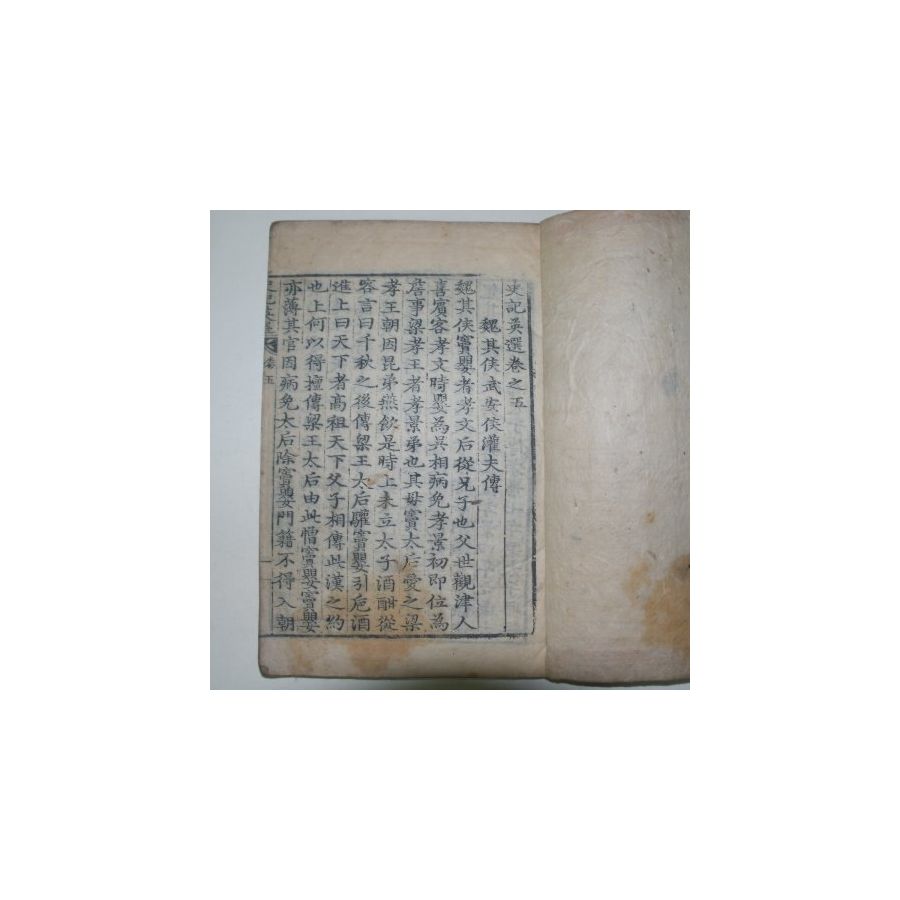 史記英選卷之五
魏其侯武安侯灌夫傳
魏其侯竇嬰者孝文后從兄子也父世觀津人
喜賓客孝文時嬰為吳相病免孝景初即位為
詹事梁孝王者孝景弟也其母竇太后愛之梁
孝王朝因昆弟燕飲是時上未立太子酒酣從
容言曰千秋之後傳梁王太后驩竇嬰引卮酒
進上曰天下者高祖天下父子相傳此漢之約
也上何以得擅傳梁王太后由此憎竇嬰竇嬰
亦薄其官因病免太后除竇嬰門籍不得入朝
卷五